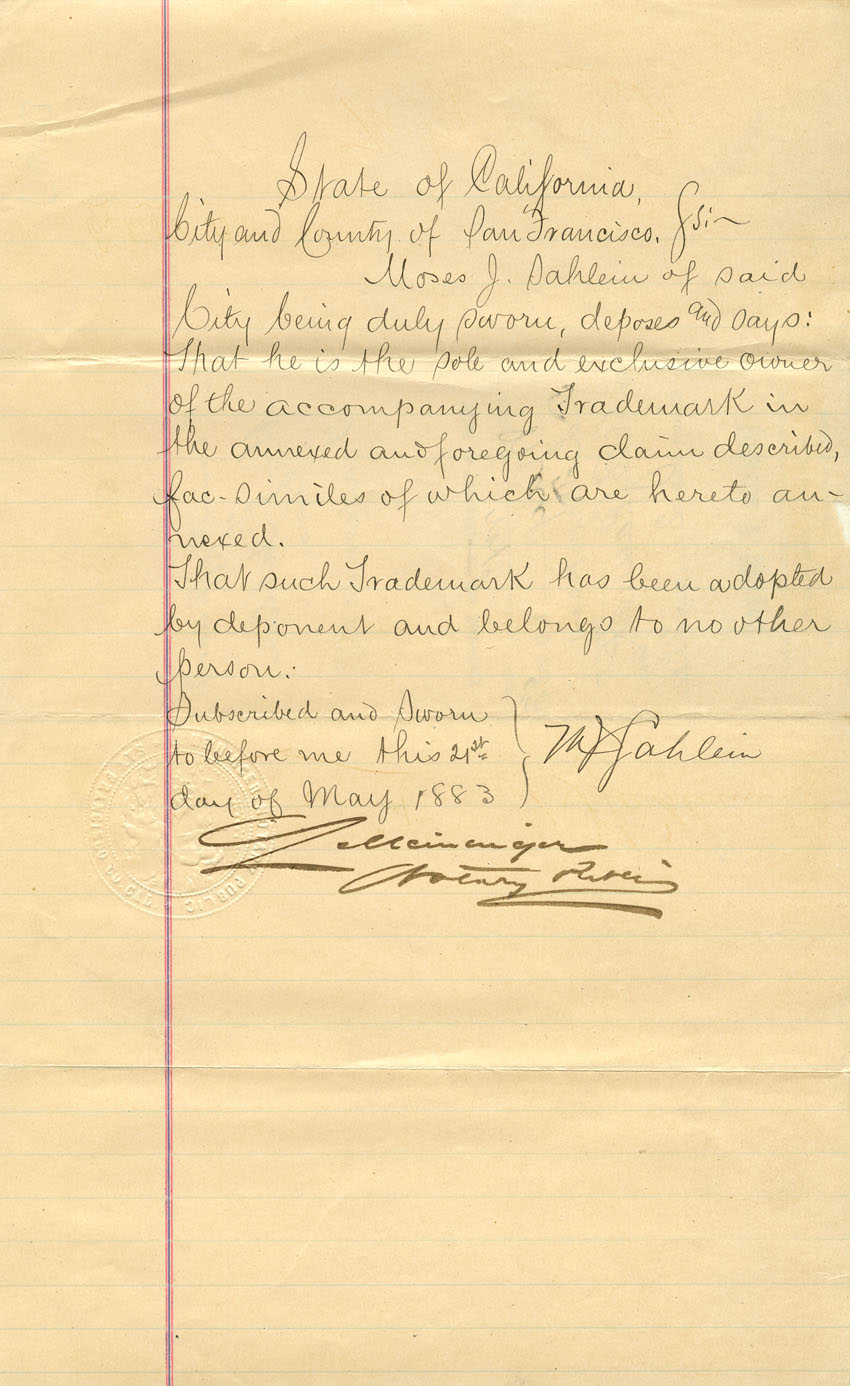 State of California,
City and County of San Francisco. } ss:
Moses J. Sahlein of said
City being duly sworn, deposes and says:
That he is the sole and exclusive owner
of the accompanying Trademark in
the annexed and foregoing claim described,
fac-similes of which are hereto an-
nexed.
That such Trademark has been adopted
by deponent and belongs to no other
person.
Subscribed and Sworn
to before me this 21st
day of May 1883
M J Sahlein
Notary Public
NOTARY PUBLIC